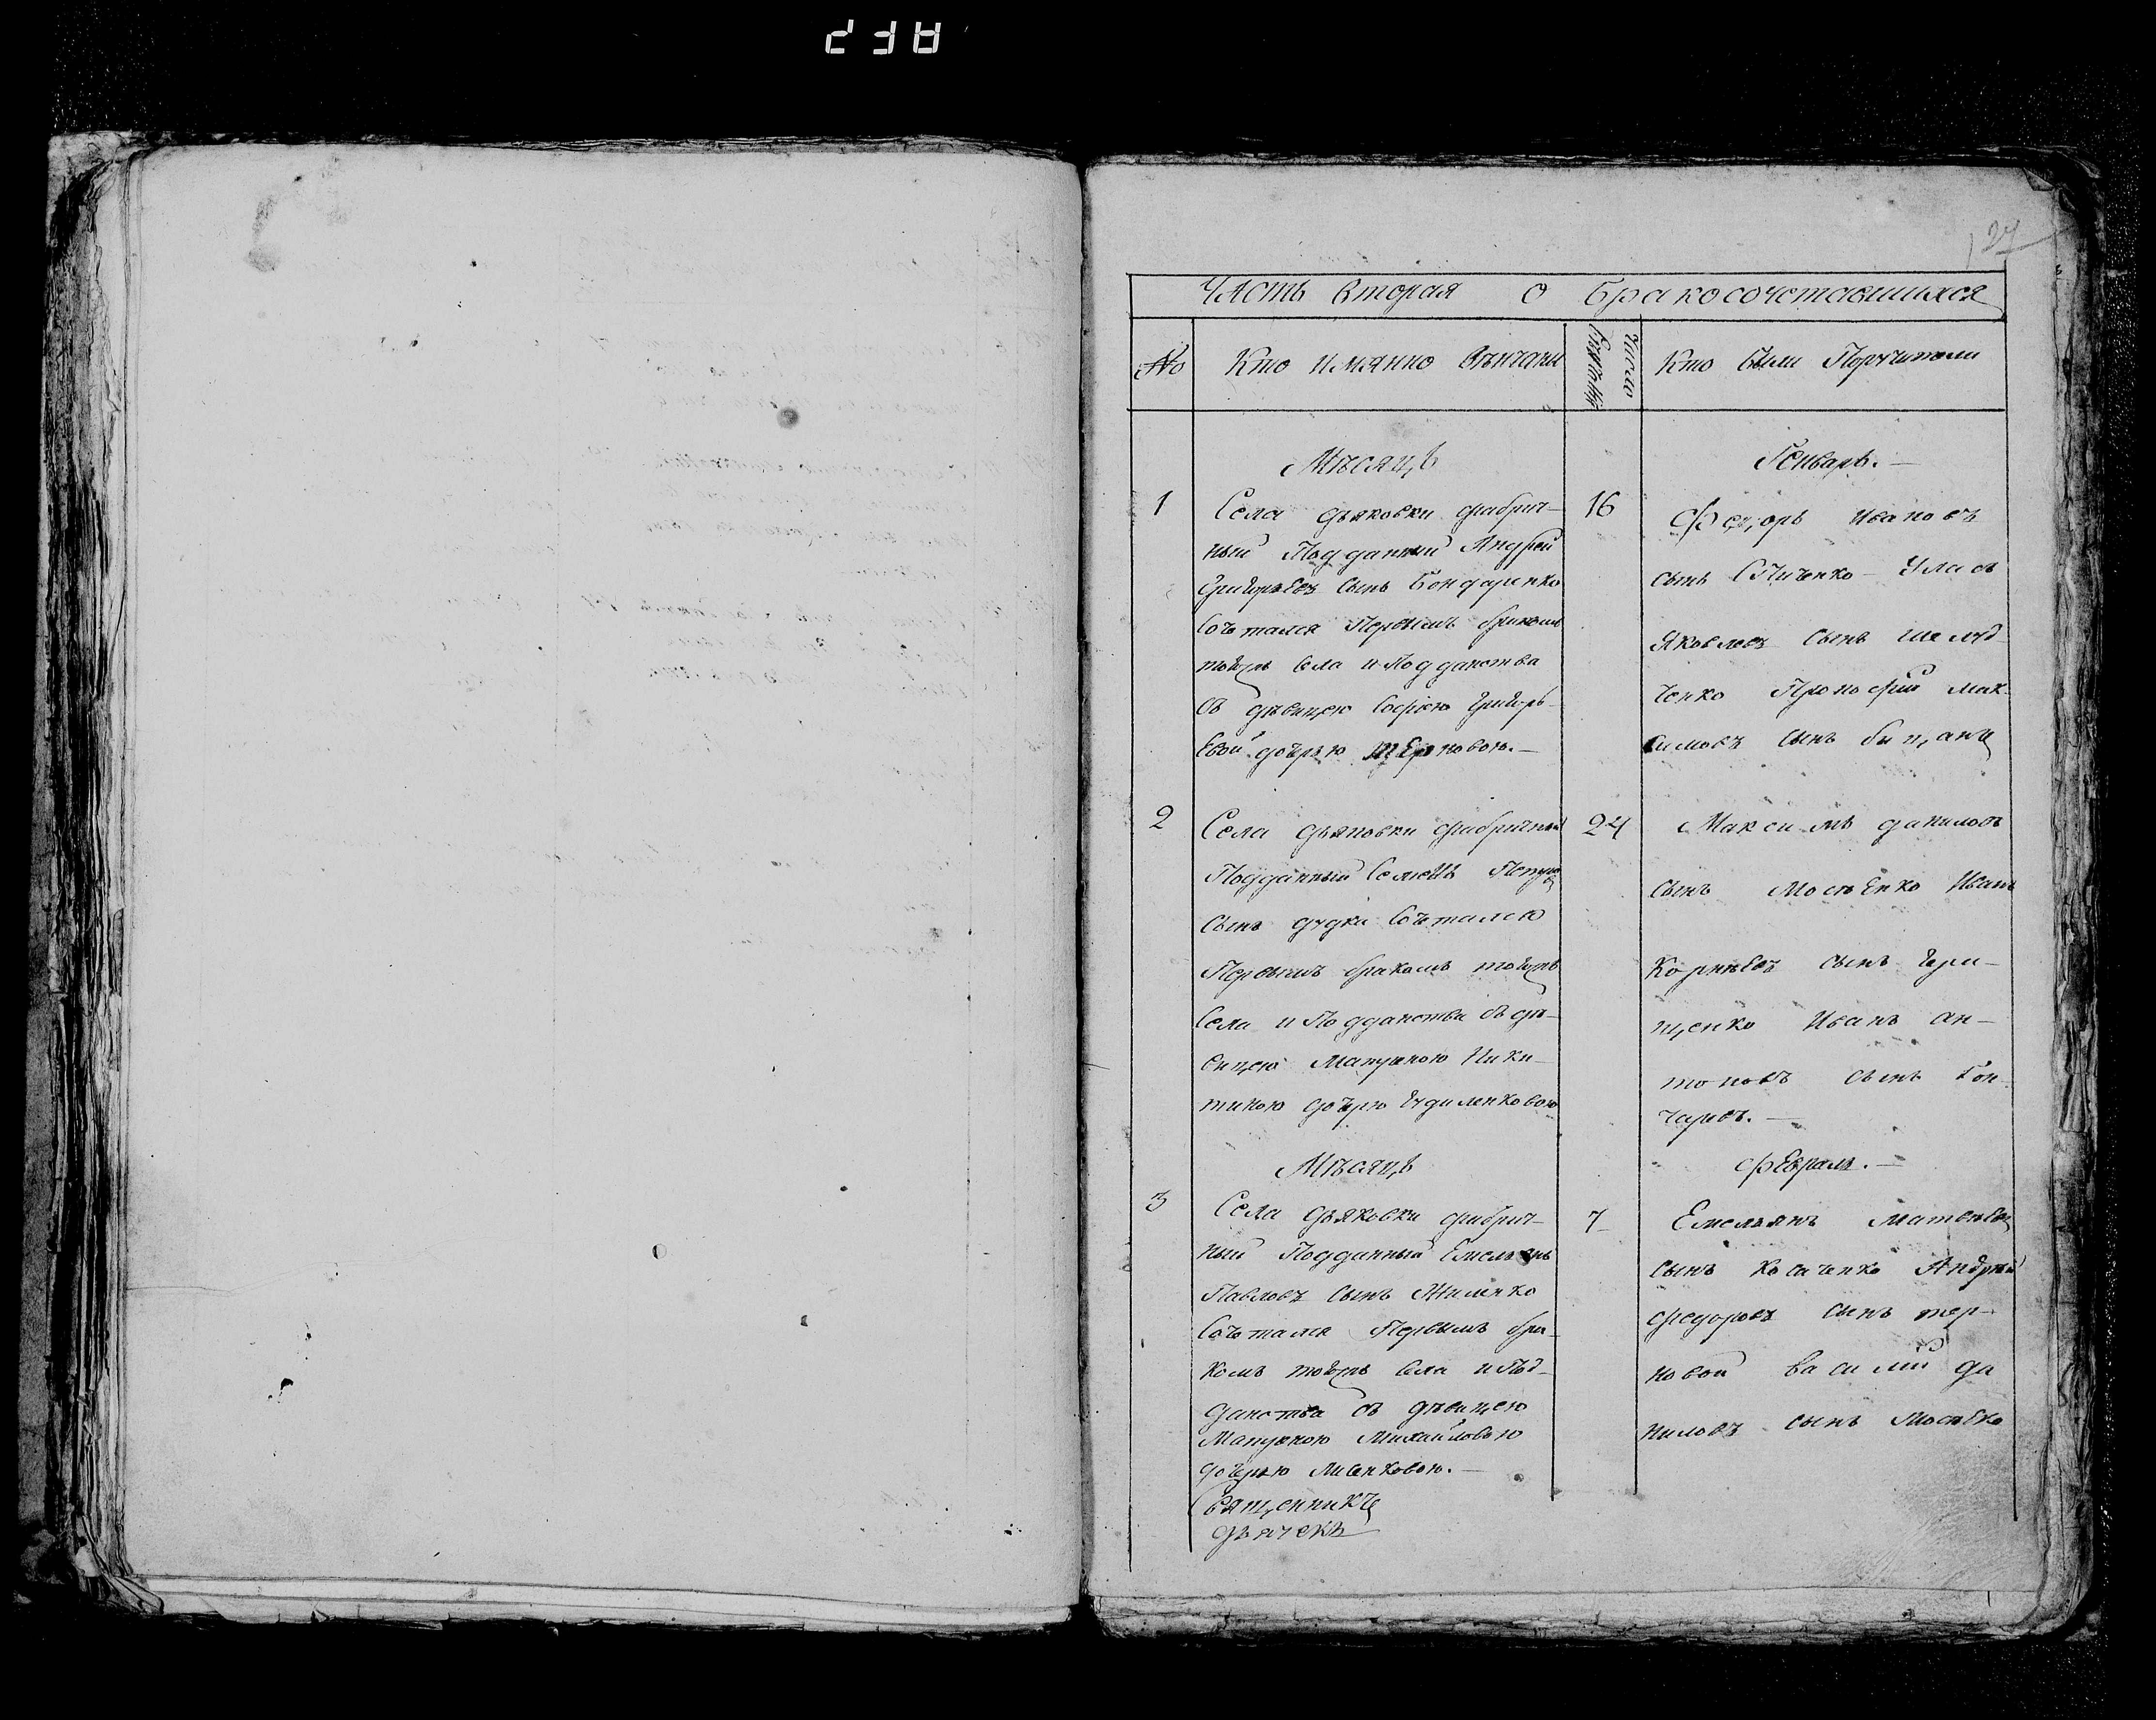 27
Часть вторая о бракосочетавшихся
№
Кто имянно венчаны
Число
Кто были Поручители
Мѣсяцъ
Генварь.
1
Села дьяковки фабрич-
ный Подданный Андрей
Григорьевъ сынъ Бондаренко
сочтался Первымъ бракомъ
тогожъ села и Подданства
съ дѣвицею Софіею Григорь-
евой дочерью терновою.
16
Федоръ Ивановъ
сынъ Уласъ
Яковлевъ сынъ шелуд
ченко Прокофій мак-
симовъ сынъ
2
Села дьяковки фабричный
Подданный Семенъ Петровъ
сынъ дудка сочтался
Первымъ бракомъ тогожъ
Села и Подданства съ дѣ-
вицею Матроною Ники-
тиною дочерю
24
Максимъ даниловъ
сынъ Мосѣенко Иванъ
Корнѣевъ сынъ Гери-
щенко Иванъ ан-
тоновъ сынъ Гон
чаровъ.
Мѣсяцъ
февраль.
3
Села дьяковки фабрич-
ный Подданный Емельянъ
Павловъ сынъ Жиленко
сочтался Первымъ бра-
комъ тогожъ села и Под-
данства съ дѣвицею
Матроною Михайловою
дочерью Лисенковою.
7
Емельянъ Матвѣевъ
сынъ Косаченко Андрѣй
федоровъ сынъ тер-
новой василій да
ниловъ сынъ
Священникъ
дьячекъ